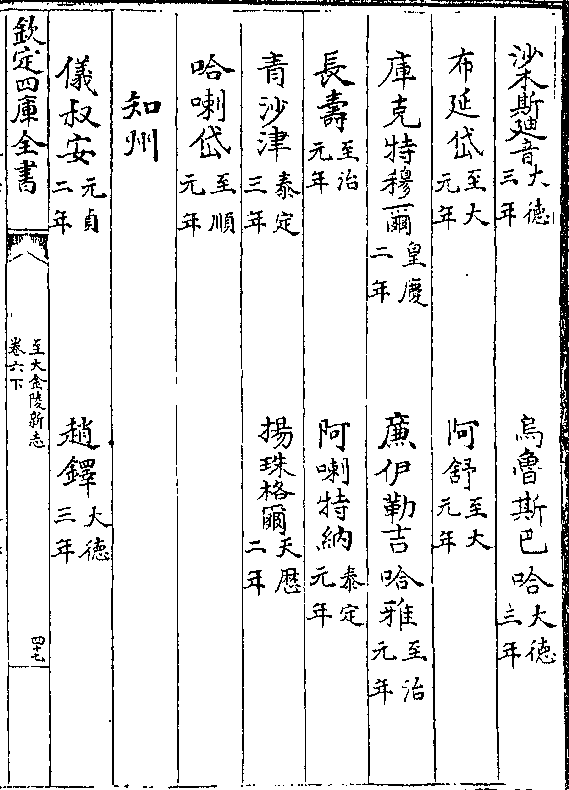 沙木斯廸音大德三年　烏魯斯巴哈大德三年
布延岱至大元年　阿舒至大元年
庫克特穆爾皇慶二年　廉伊勒吉哈雅至治元年
長壽至治元年　阿喇特納泰定元年
青沙津泰定三年　揚珠格爾天厯二年
哈喇岱至順元年
知州
儀叔安元貞二年　趙鐸大德三年
欽定四庫全書　至大金陵新志卷六下　四十七